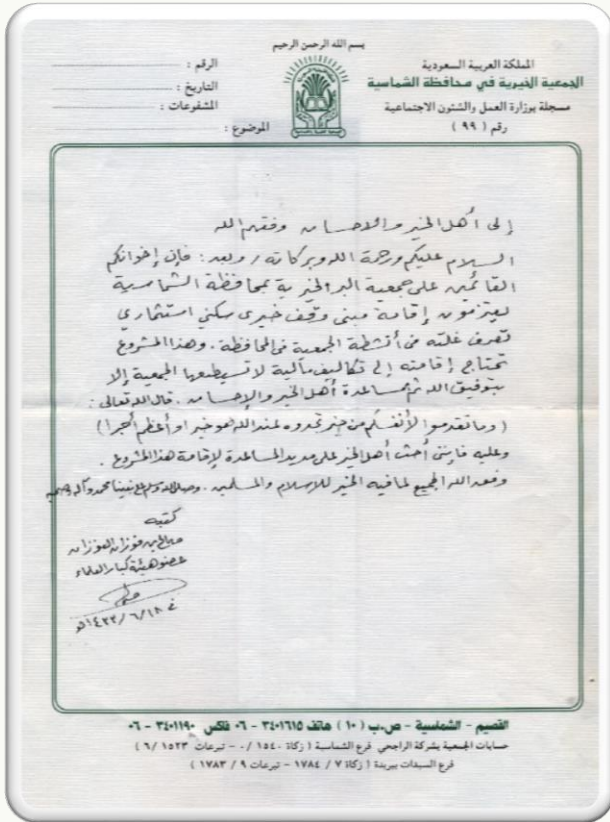 بسم الله الرحمن الرحيم
المملكة العربية السعودية
الجمعية الخيرية في محافظة الشماسية
مسجلة بوزارة العمل والشئون الاجتماعية
رقم ( ٩٩ )
الرقم :
التاريخ :
المشفوعات :
الموضوع :
إلى أهل الخير والاحسان وفقهم الله
السلام عليكم ورحمة الله وبركاته / وبعد : فإن إخوانكم
القائمين على جمعية البر الخيرية بمحافظة الشماسية
يعتزمون إقامة مبنى وقف خيري سكني استثماري
تصرف غلته من أنشطة الجمعية في المحافظة . وهذا المشروع
تحتاج إقامته إلى تكاليف مالية لا تسطيعها الجمعية إلا
بتوفيق الله ثم بمساعدة أهل الخير والإحسان . قال الله تعالى :
( وما تقدموا لأنفسكم من خير تجدوه عند الله هو خيرا وأعظم أجرا )
وعليه فإنني أحث أهل الخير على مد يد المساعدة لإقامة هذا المشروع .
وفق الله الجميع لما فيه الخير للاسلام والمسلمين . وصلى الله وسلم على نبينا محمد وآله وصحبه
كتبه
صالح بن فوزان الفوزان
عضو هيئة كبار العلماء
في ١٨ / ٦ / ١٤٣٢هـ
القصيم - الشماسية - ص.ب ( ١٠ ) هاتف ٣٤٠١٦١٥ - ٠٦ فاكس ٣٤٠١١٩٠ - ٠٦
حسابات الجمعية بشركة الراجحي فرع الشماسية ( زكاة ١٥٤٠ / ٠ - تبرعات ١٥٢٣ / ٦ )
فرع السيدات ببريدة ( زكاة ٧ / ١٧٨٤ - تبرعات ٩ / ١٧٨٣ )